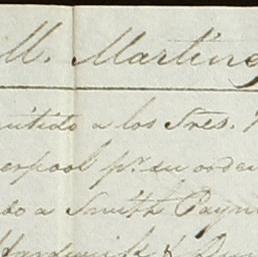 M. Martine
mitido a los Sres.
erpool pr. su orde
do a Smith Payn
Hardwick &